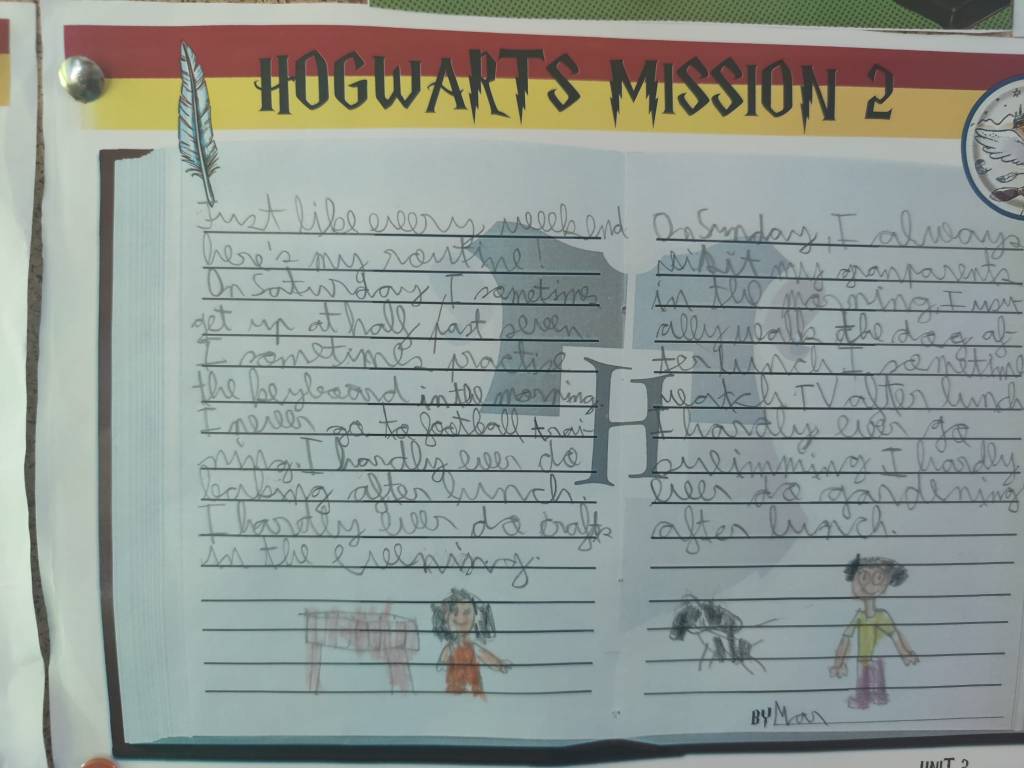 HOGWARTS MISSION 2
Just like every weekend
here's my routine!
On Saturday, I sometime
get up at half past seven
I sometimes practise
the keyboard in the morning.
I never go to football trai
ning. I hardly ever do
baking after lunch.
I hardly ever do crafts
in the evening.
On Sunday, I always
visit my granparents
in the morning. I usu
ally walk the dog af
ter lunch I sometime
watch TV after lunch
I hardly ever go
swimming I hardly
ever do gardening
after lunch.
H
BY Mar
UNIT 2